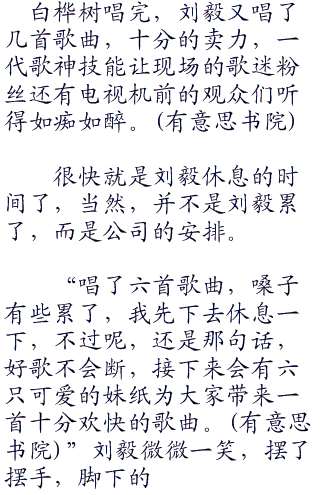 白桦树唱完，刘毅又唱了
几首歌曲，十分的卖力，一
代歌神技能让现场的歌迷粉
丝还有电视机前的观众们听
得如痴如醉。(有意思书院)
很快就是刘毅休息的时
间了，当然，并不是刘毅累
了，而是公司的安排。
“唱了六首歌曲，嗓子
有些累了，我先下去休息一
下，不过呢，还是那句话，
好歌不会断，接下来会有六
只可爱的妹纸为大家带来一
首十分欢快的歌曲。(有意思
书院)”刘毅微微一笑，摆了
摆手，脚下的